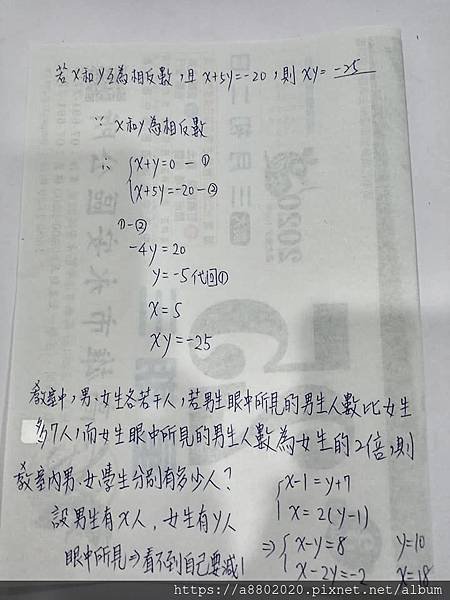 若x和y互為相反數，且x+5y=-20，則xy= -25
∵ x和y為相反數
∴ { x+y=0 -①
x+5y=-20-②
①-②
-4y=20
y=-5代回①
x=5
xy=-25
教室中，男、女生各若干人，若男生眼中所見的男生人數比女生
多7人，而女生眼中所見的男生人數為女生的2倍，則
教室內男、女學生分別有多少人？
設男生有x人，女生有y人
眼中所見⇒看不到自己要減1
{ x-1=y+7
x=2(y-1)
⇒ { x-y=8 y=10
x-2y=-2 x=18
2020
https://a8802020.pixnet.net/album